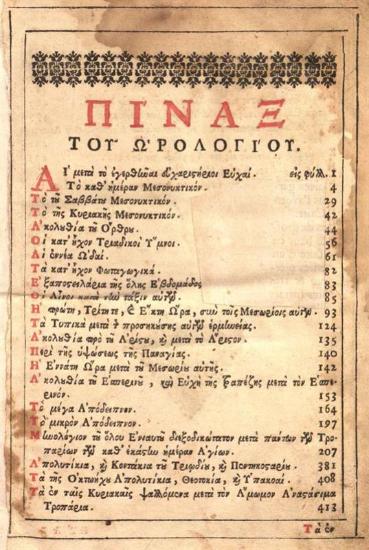 ΠΙΝΑΞ
ΤΟΥ ΩΡΟΛΟΓΙΟΥ.
ΑΙ μετὰ τὸ ἐγερθῆναι εὐχαριστήριοι Εὐχαί. εἰς φύλ. 1
Τὸ καθ' ἡμέραν Μεσονυκτικόν. 4
Τὸ τῦ Σαββάτυ Μεσονυκτικόν. 29
Τὸ τῆς Κυριακῆς Μεσονυκτικόν. 42
Ἀκολυθία τῦ Ὄρθρυ. 44
Οἱ κατ' ἦχον Τριαδικοὶ Ὕμνοι. 56
Αἱ ἐννέα ᾨδαί. 61
Τὰ κατ' ἦχον Φωταγωγικά. 82
Ἐξαποστειλάρια τῆς ὅλης Ἑβδομάδος 83
Οἱ Αἶνοι κατὰ τὴν τάξιν αὐτῶν. 85
Ἡ πρώτη, Τρίτη, ϗ Ἕκτη Ὥρα, σὺν τοῖς Μεσωρίοις αὐτῶν. 93
Τὰ Τυπικὰ μετὰ τ προσηκύσης αὐτῶν ἑρμηνείας. 124
Ἀκολυθία πρὸ τῦ Ἀρίστυ, ϗ μετὰ τὸ Ἄριστον. 135
Περὶ τῆς ὑψώσεως τῆς Παναγίας. 140
Ἡ Ἐννάτη Ὥρα μετὰ τῦ Μεσωρίυ αὐτῆς. 142
Ἀκολυθία τῦ Ἑσπερινῦ, ϗ Εὐχὴ τῆς Τραπέζης μετὰ τὸν Ἑσπερινόν.
153
Τὸ μέγα Ἀπόδειπνον. 164
Τὸ μικρὸν Ἀπόδειπνον. 197
Μηνολόγιον τῦ ὅλυ Ἐνιαυτῦ διεξοδικώτατον μετὰ πάντων τῶν Τροπαρίων τῶν καθ' ἑκάστην ἡμέραν Ἁγίων. 207
Ἀπολυτίκια, ϗ Κοντάκια τῦ Τριῳδίυ, ϗ Πεντηκοσταρίυ. 381
Τὰ τῆς Ὀκτωήχυ Ἀπολυτίκια, Θεοτοκία, ϗ Ὑπακοαί 408
Τὰ ἐν ταῖς Κυριακαῖς ψαλλόμενα μετὰ τὸν Ἄμωμον Ἀναστάσιμα
Τροπάρια. 413
Τὰ ἐν